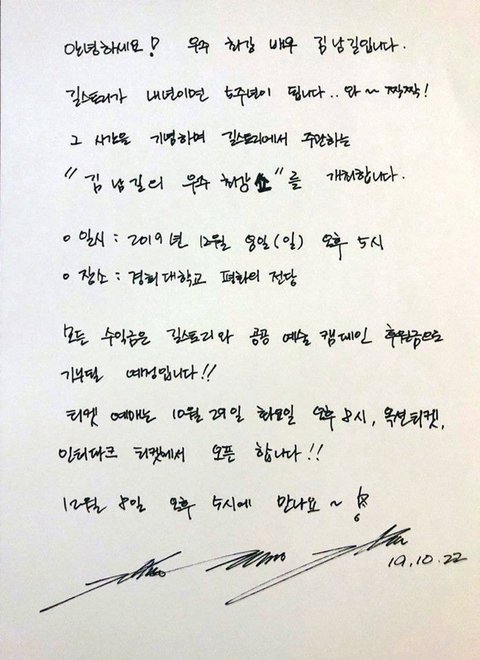 안녕하세요! 우주 최강 배우 김남길입니다.
길스토리가 내년이면 5주년이 됩니다.. 와~ 짝짝!
그 시간을 기념하며 길스토리에서 주관하는
"김남길의 우주최강쇼"를 개최합니다.
o 일시 : 2019년 12월 8일(일) 오후 5시
o 장소 : 경희대학교 평화의 전당
모든 수익금은 길스토리와 공공 예술 캠페인 후원금으로
기부될 예정입니다!!
티켓 예매는 10월 29일 화요일 오후 8시, 옥션티켓,
인터파크 티켓에서 오픈 합니다!!
12월 8일 오후 5시에 만나요~
19.10.22